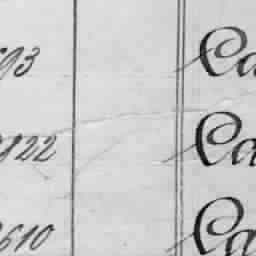 93 Ca
822 Ca
610 Ca